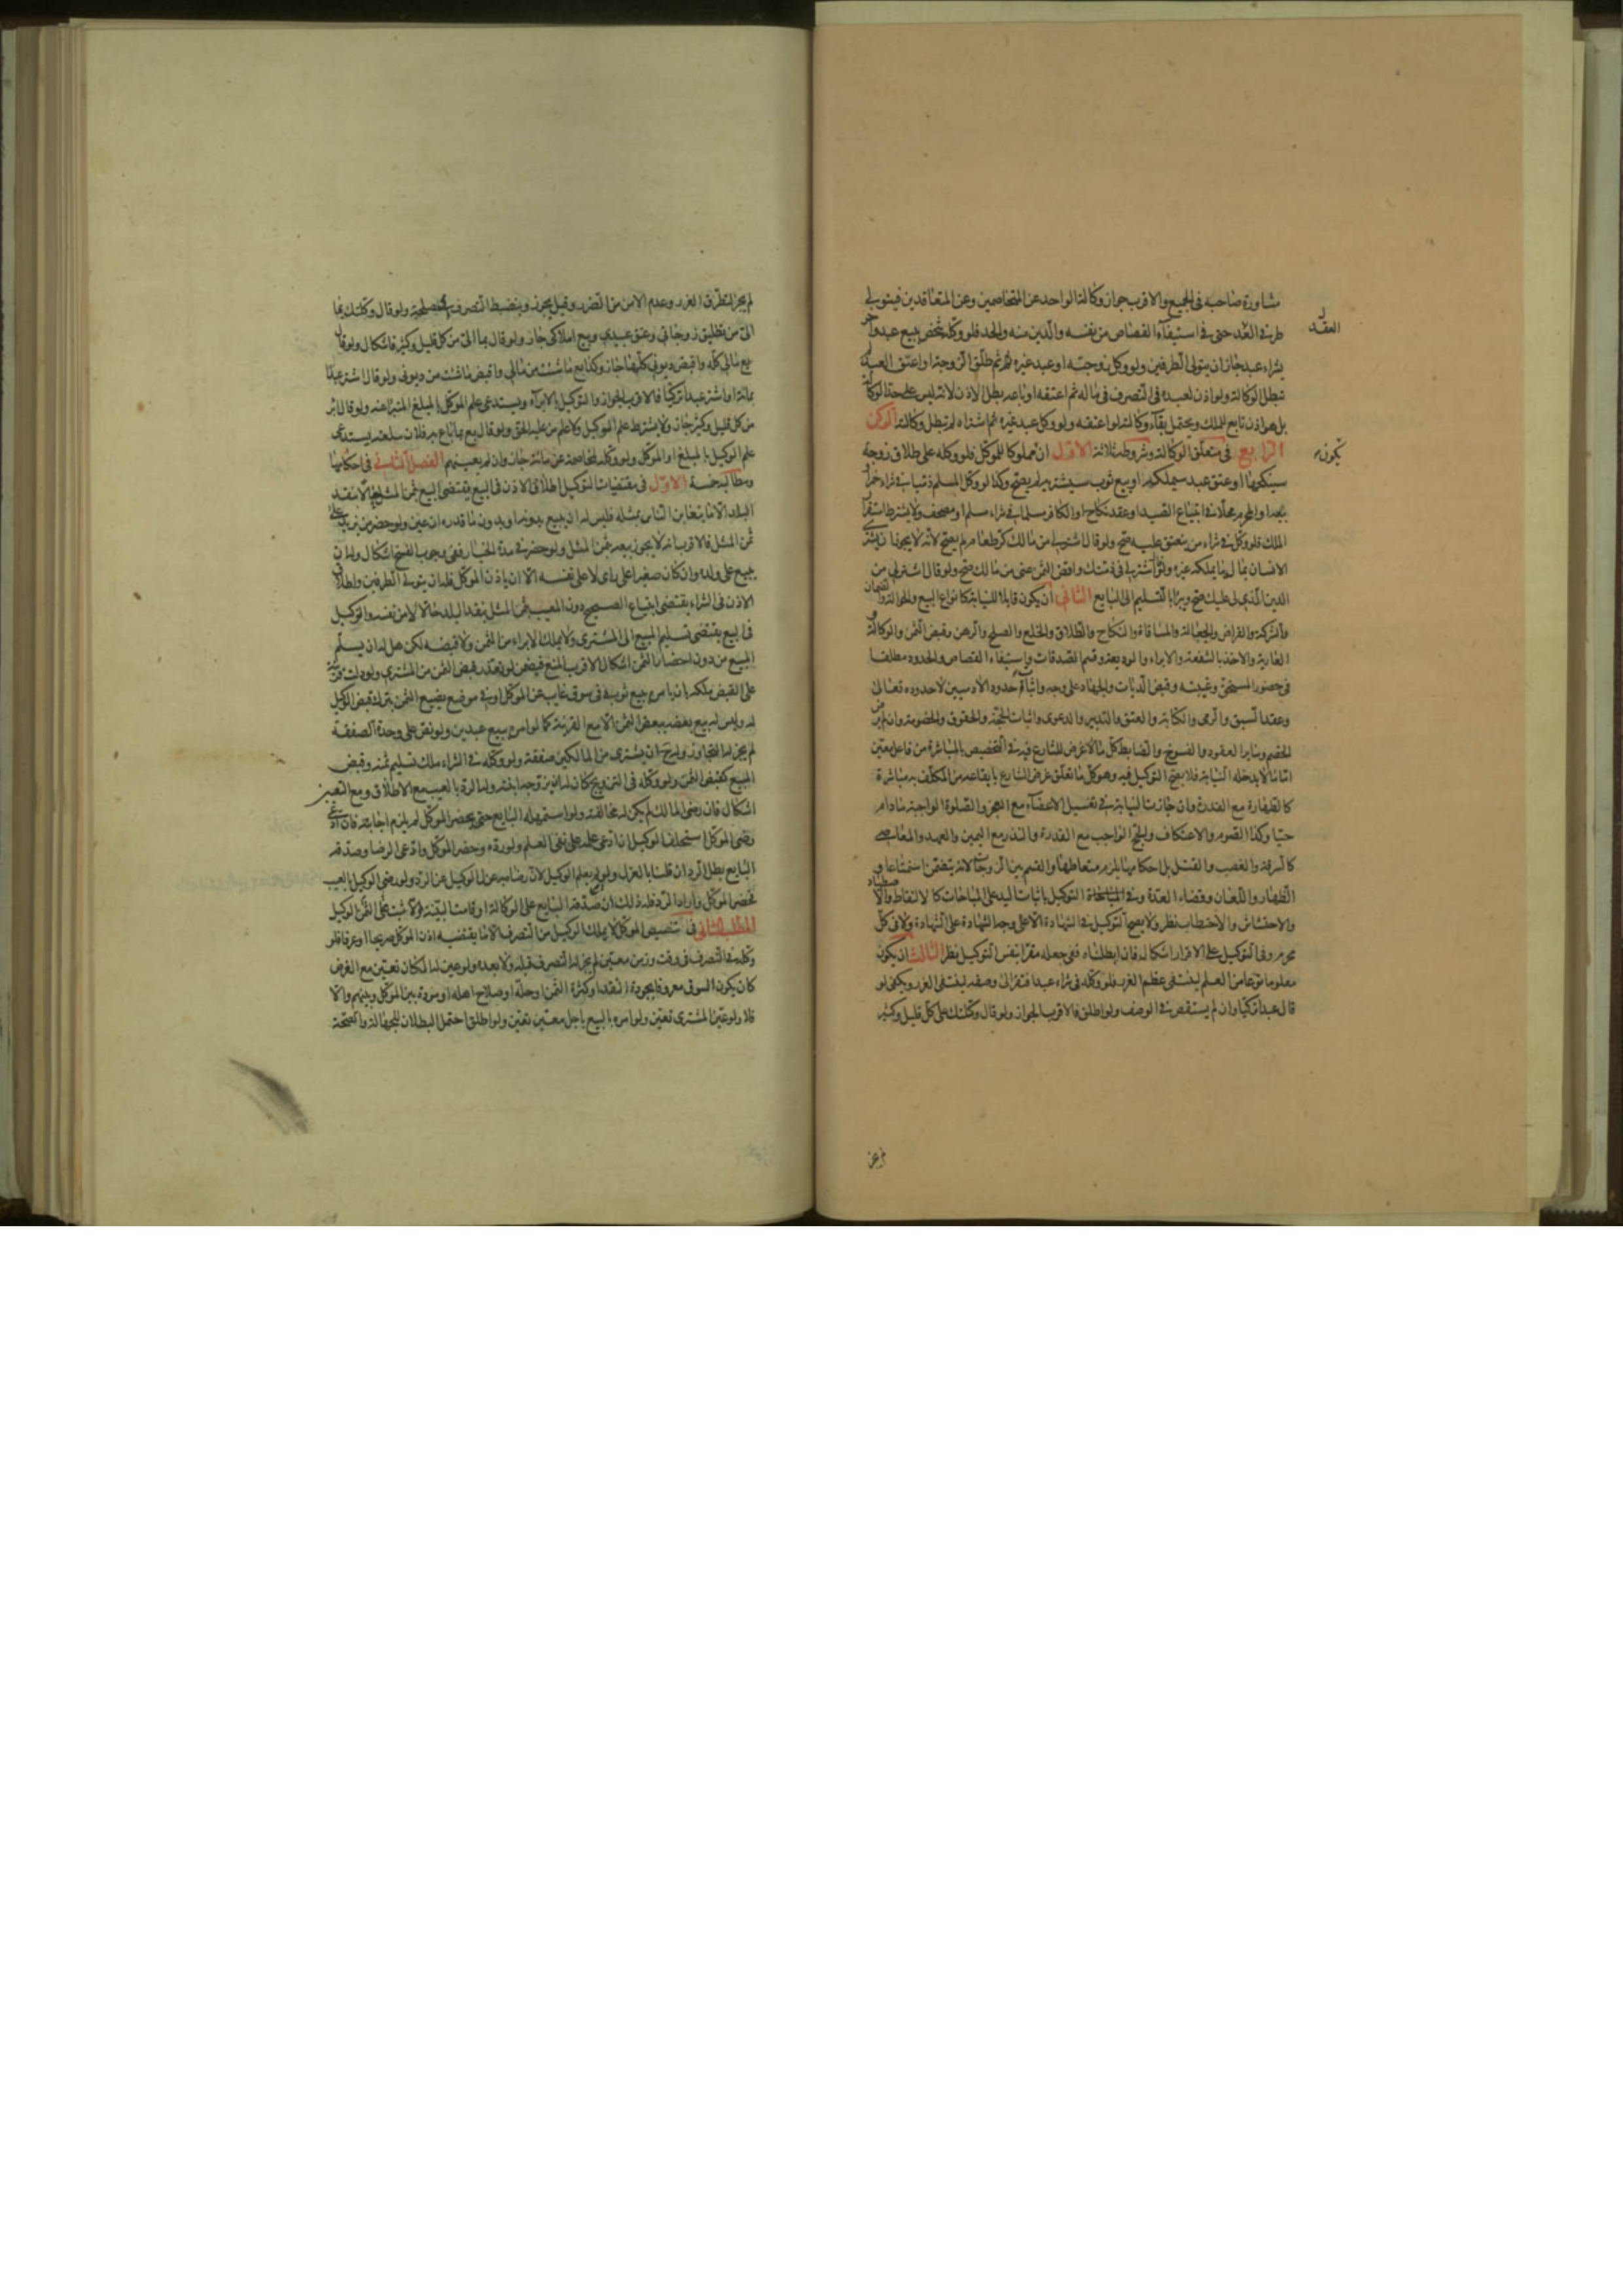 مشاورة صاحبه فى الجميع والاقرب جواز وكالة الواحد عن المتخاصمين وعن المتعاقدين فيتولى
العقد
طرفى العقد حتى فى استيفآء القصاص من نفسه والدين منه والحد فلو وكله شخص ببيع عبد وآخر
بشراء عبد جاز ان يتولى الطرفين ولو وكل زوجته او عبد غيره ثم طلق الزوجة او اعتق العبد لم
تبطل الوكالة ولو اذن لعبده فى التصرف فى ماله ثم اعتقه او باعه بطل الاذن لانه ليس على حد الوكالة
بل هو اذن تابع للملك ويحتمل بقآء وكالته لو اعتقه ولو وكل عبد غيره ثم اشتراه لم تبطل وكالته الركن
الرابع فى متعلق الوكالة وشروطه ثلاثة الاول ان مملوكا للموكل فلو وكله على طلاق زوجة
يكون
سينكحها او عتق عبد سيملكه او بيع ثوب سيشتريه لم يصح وكذا لو وكل المسلم ذميا فى شراء خمر او
بيعها والمحرم محلا فى ابتياع الصيد او عقد نكاح او الكافر مسلما فى شراء مسلم او مصحف ولا يشترط استقرار
الملك فلو وكل فى شراء من ينعتق عليه صح ولو قال اشتر لى من مالك كر طعام لم يصح لانه لا يجوز ان يشترى
الانسان بماله ما يملكه غيره ولو قال اشتر لى فى ذمتك واقض الثمن عنى من مالك صح ولو قال اشتر لى من
الدين الذى لى عليك صح ويبرأ بالتسليم الى البايع الثانى ان يكون قابلا للنيابة كانواع البيع والحوالة والضمان
والشركة والقراض والجعالة والمساقاة والنكاح والطلاق والخلع والصلح والرهن وقبض الثمن والوكالة و
العارية والاخذ بالشفعة والابراء والوديعة وقسم الصدقات واستيفاء القصاص والحدود مطلقا
فى حضور المستحق وغيبته وقبض الديات والجهاد على وجه واثبات حدود الآدميين لا حدوده تعالى
وعقد السبق والرمى والكتابة والعتق والتدبير والدعوى واثبات الحجة والحقوق والخصومة وان لم يرض
الخصم وساير العقود والفسوخ والضابط كل ما لا غرض للشارع فيه فى التخصيص بالمباشرة من فاعل معين
اما ما لا يدخله النيابة فلا يصح التوكيل فيه وهو كل ما تعلق غرض الشارع بايقاعه من المكلف به مباشرة
كالطهارة مع القدرة وان جازت النيابة فى تغسيل الاعضآء مع العجز والصلوة الواجبة ما دام
حيا وكذا الصوم والاعتكاف والحج الواجب مع القدرة والنذر مع اليمين والعهد والمعاصى
كالسرقة والغصب والقتل بل احكامها يلزم متعاطيها والقسم بين الزوجات لانه يتضمن استمتاعا و
الظهار واللعان وقضاء العدة وفى صحة التوكيل باثبات اليد على المباحات كالالتقاط والاصطياد
والاحتشاش والاحتطاب نظر ولا يصح التوكيل فى الشهادة الا على وجه الشهادة على الشهادة ولا فى كل
محرم وفى التوكيل على الاقرار اشكال فان ابطلناه ففى جعله مقرا بنفس التوكيل نظر الثالث ان يكون
معلوما نوعا من العلم لينتفى عظم الغرر فلو وكله فى شراء عبد افتقر الى وصفه لينتفى الغرر ويكفى لو
قال عبدا تركيا وان لم يستقص فى الوصف ولو اطلق فالاقرب الجواز ولو قال وكلتك على كل قليل وكثير
لم يجز لتطرق الغرر وعدم الامن من الضرر وقيل يجوز وينضبط التصرف بالمصلحة ولو قال وكلتك بما
الى من تطليق زوجاتى وعتق عبيدى وبيع املاكى جاز ولو قال بما الى من كل قليل وكثير فاشكال ولو قال
بع مالى كله واقبض ديونى كلها جاز وكذا بع ما شئت من مالى واقبض ما شئت من ديونى ولو قال اشتر عبدا
بمائة او اشتر عبدا تركيا فالاقرب الجواز والتوكيل بالابرآء يستدعى علم الموكل بالمبلغ المبرأ عنه ولو قال ابره
من كل قليل وكثير جاز ولا يشترط علم الوكيل ولا علم من عليه الحق ولو قال بع بما باع به فلان سلعته استدعى
علم الوكيل بالمبلغ او الموكل ولو وكله لمخاصمة غرمائه جاز وان لم يعينهم الفصل الثانى فى احكامها
ومطالبه خمسة الاول فى مقتضيات التوكيل اطلاق الاذن فى البيع يقتضى البيع بثمن المثل حالا بنقد
البلد الا ما يتغابن الناس بمثله فليس له ان يبيع بدونه او بدون ما قدره ان عين ولو حضر من يزيد على
ثمن المثل فالاقرب انه لا يجوز بيعه بثمن المثل ولو حضر فى مدة الخيار ففى وجوب الفسخ اشكال وله ان
يبيع على ولده وان كان صغيرا على رأى لا على نفسه الا ان ياذن الموكل فله ان يتولى الطرفين واطلاق
الاذن فى الشراء يقتضى ابتياع الصحيح دون المعيب بثمن المثل بنقد البلد حالا لا من نفسه والتوكيل
فى البيع يقتضى تسليم المبيع الى المشترى ولا يملك الابراء من الثمن ولا قبضه لكن هل له ان يسلم
المبيع من دون احضار الثمن اشكال الاقرب المنع فيضمن لو تعذر قبض الثمن من المشترى ولو دلت قرينة
على القبض ملكه بان يامره ببيع ثوب فى سوق غايب عن الموكل او فى موضع يضيع الثمن بترك قبض الوكيل
له وليس له بيع بعضه ببعض الثمن الا مع القرينة كما لو امره ببيع عبدين ولو نص على وحدة الصفقة
لم يجز له التجاوز وله ان يشترى من المالكين صفقة ولو وكله فى الشراء ملك تسليم ثمنه وقبض
المبيع كقبض الثمن ولو وكله فى التزويج كان له ان يزوجه ابنته وله الرد بالعيب مع الاطلاق ومع التعيين
اشكال فان رضى المالك لم يكن له مخالفته ولو استمهله البايع حتى يحضر الموكل لم يلزم اجابته فان ادعى
رضى الموكل استحلف الوكيل ان ادعى علمه على نفى العلم ولو رده وحضر الموكل وادعى الرضا وصدقه
البايع بطل الرد ان قلنا بالعزل ولم يعلم الوكيل لان رضاه به عزل للوكيل عن الرد ولو رضى الوكيل بالعيب
فحضر الموكل واراد الرد فله ذلك ان صدقه البايع على الوكالة او قامت البينة والا ثبت على الوكيل
المطلب الثانى فى تنصيص الموكل لا يملك الوكيل من التصرف الا ما يقتضيه اذن الموكل صريحا او عرفا فلو
وكله فى التصرف فى وقت وزمن معين لم يجز له التصرف قبله ولا بعده ولو عين له المكان تعين مع الغرض
كان يكون السوق معروفا بجودة النقد او كثرة الثمن او حله او صلاح اهله او مودة بين الموكل وبينهم والا
فلا ولو عين المشترى تعين ولو امره بالبيع باجل معين تعين ولو اطلق احتمل البطلان للجهالة والصحة